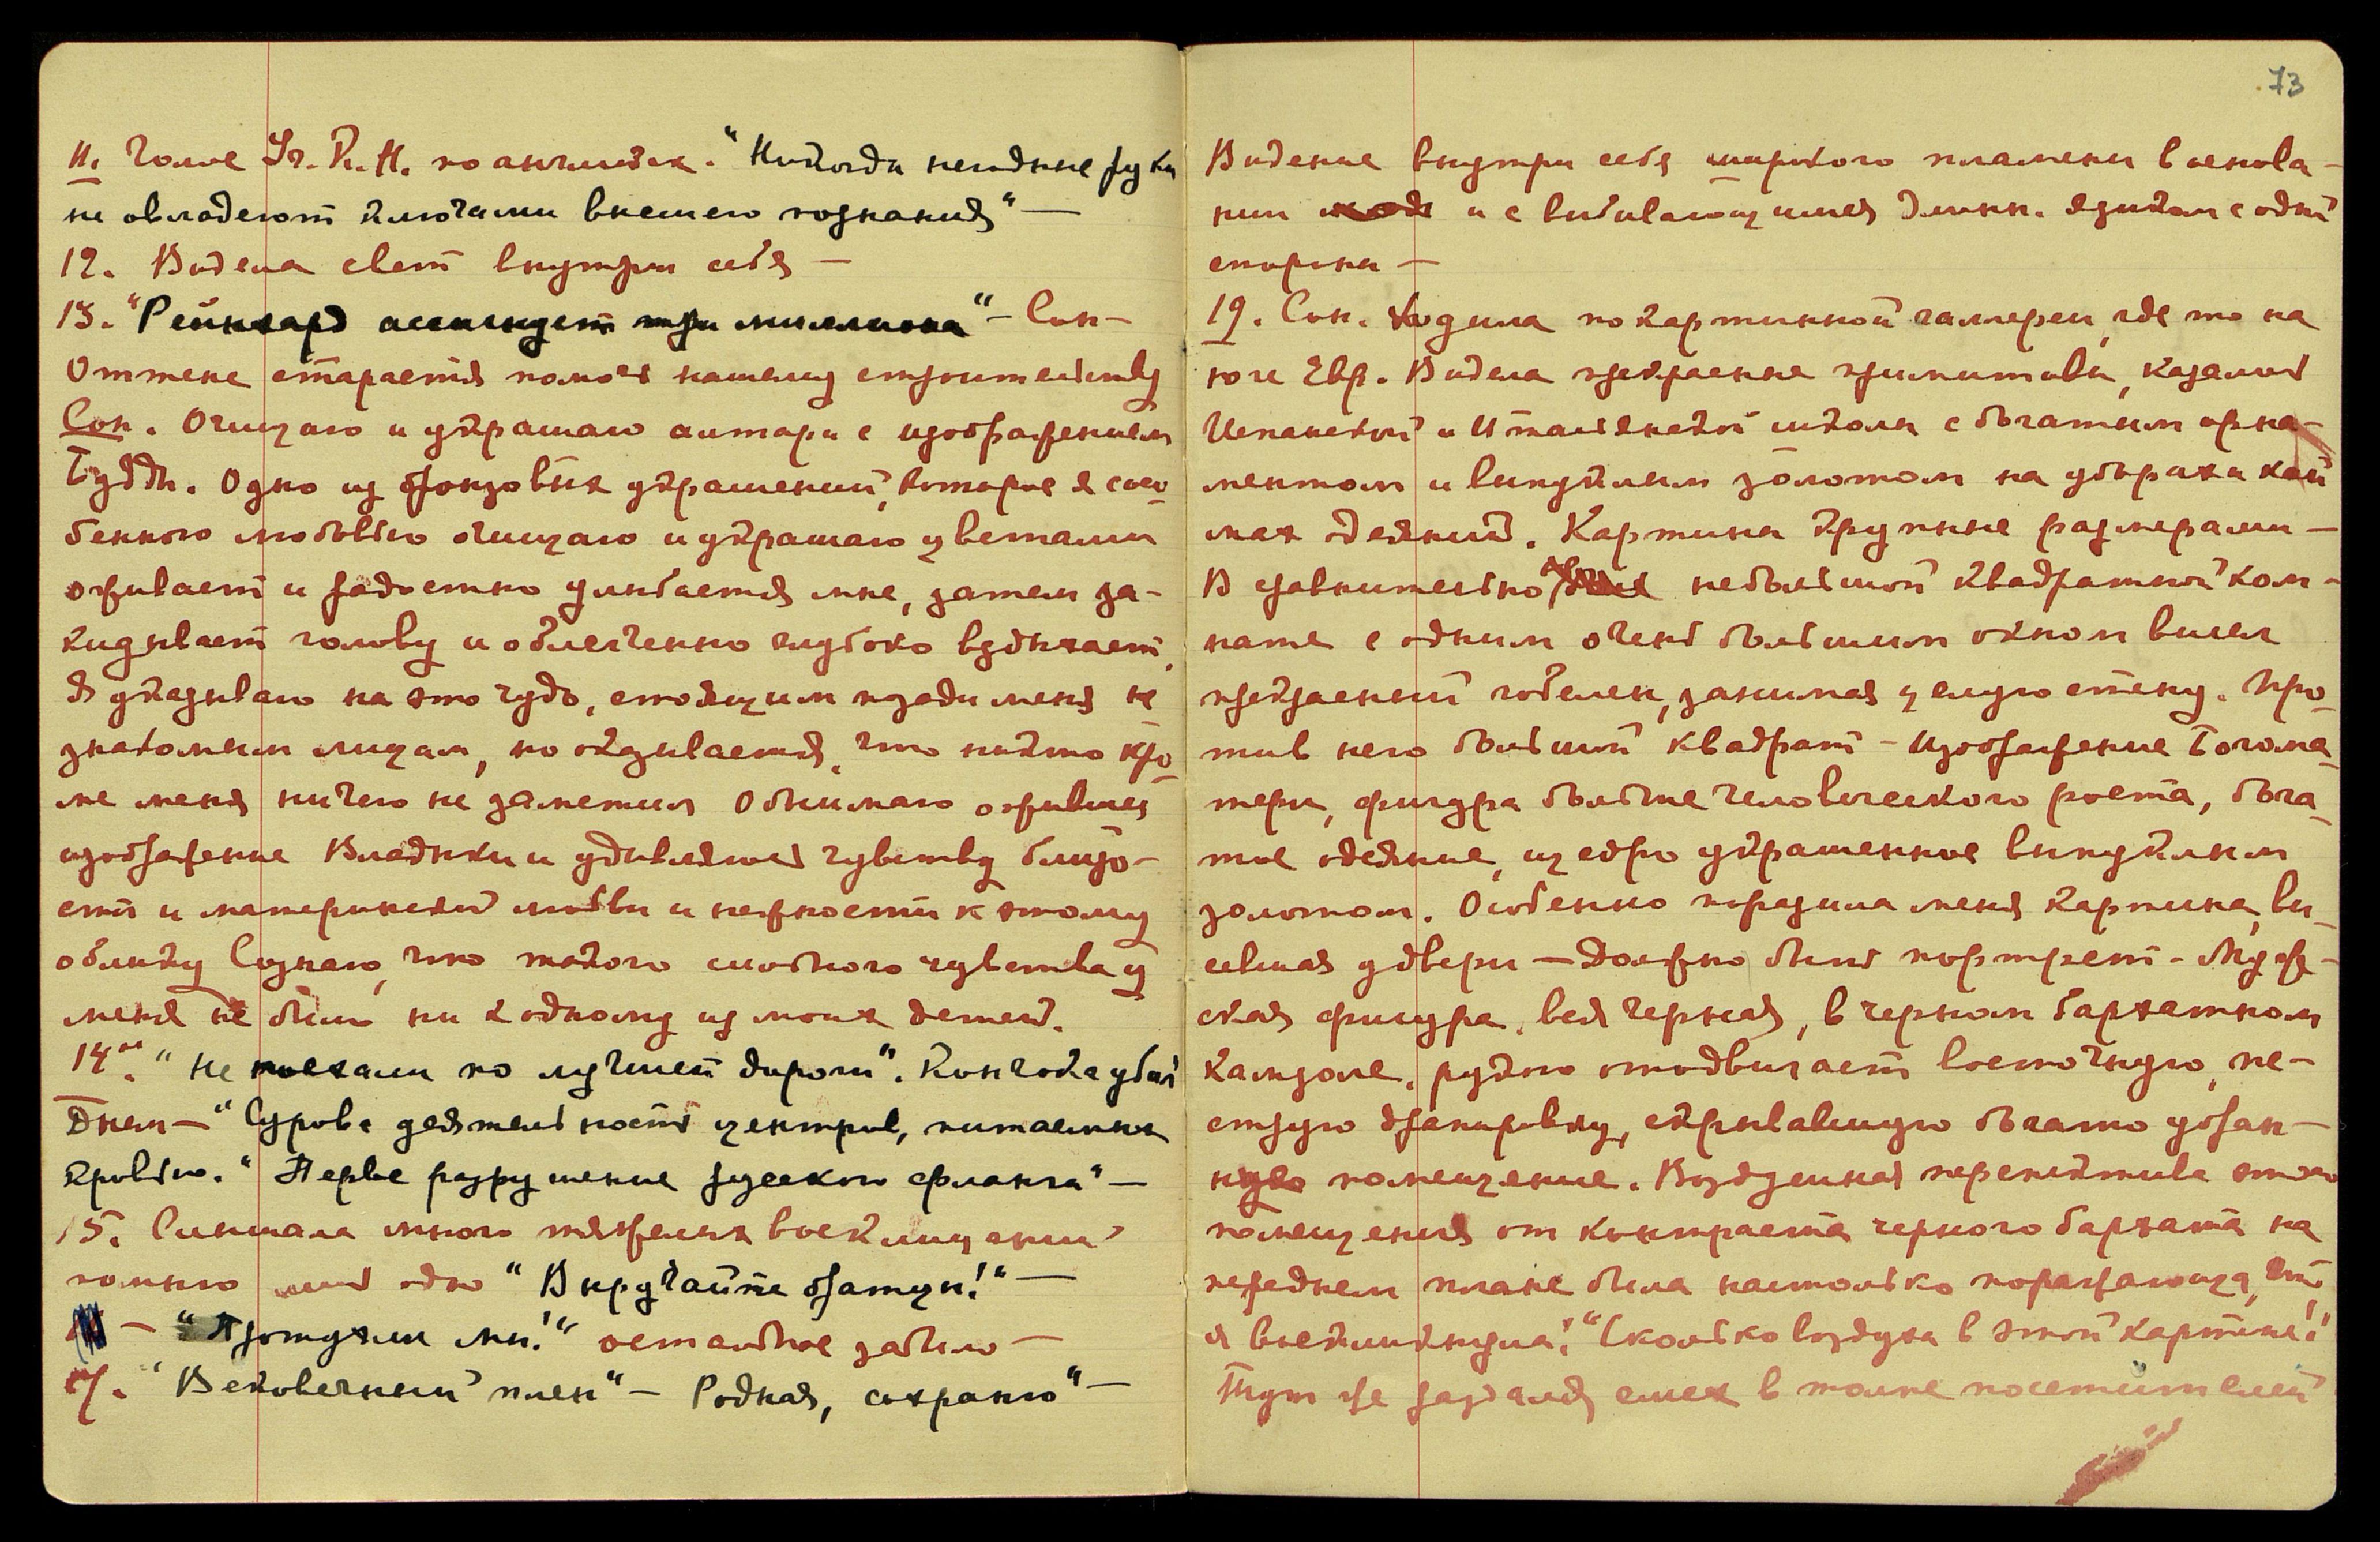 11. Голос Уч. К.Н. по английск. "Никогда негодные руки
не овладеют ключами внешнего познания" —
12. Видела свет внутри себя —
13. "Рейнхард ассигнует три миллиона" — Сон —
Оттене старается помочь нашему строительству
Сон. Очищаю и украшаю алтари с изображением
Будды. Одно из бронзовых украшений, которые я с осо-
бенною любовью очищаю и украшаю цветами
оживает и радостно улыбается мне, затем за-
кидывает голову и облегченно глубоко вздыхает,
Я указываю на это чудо, стоящим позади меня не-
знакомым лицам, но оказывается, что никто кро-
ме меня ничего не заметил Обнимаю ожившее
изображение Владыки и удивляюсь чувству близо-
сти и материнской любви и нежности к этому
облику Сознаю, что такого сильного чувства у
меня не было ни к одному из моих детей.
14ое. "Не поехали по лучшей дороги".
Днем — "Сурова деятельность центров, питаемых
кровью." "Первое разрушение русского фланга" —
15. Слышала много тяжелых восклицаний
помню лишь одно "Выручайте братцы!" —
— "Протухли мы!" остальное забыло —
17. "Вековечный плен" — Родная, сохраню" —
73
Видение внутри себя широкого пламени в основа-
нии и с выбивающимся длинн. языком с одной
стороны —
19. Сон. Ходила по картинной галлереи, где то на
юге Евр. Видела прекрасные примитивы, казалось
Испанской и Итальянской школы с богатым орна-
ментом и выпуклым золотом на уборах и кай
мах одеяний. Картины крупные размерами —
В сравнительно небольшой квадратной ком-
нате с одним очень большим окном висел
прекрасный гобелен, занимая целую стену. Про-
тив него большой квадрат — Изображение Богома-
тери, фигура больше человеческого роста, бога-
тое одеяние, щедро украшенное выпуклым
золотом. Особенно поразила меня картина, ви-
севшая у двери — Должно быть портрет — Муж-
ская фигура, вся черная, в черном бархатном
камзоле, рукою отодвигает восточную, пе-
струю драпировку, скрывавшую богато убран-
ную помещение. Воздушная перспектива этого
помещения от контраста черного бархата на
переднем плане была настолько поражающа, что
я воскликнула: "Сколько воздуха в этой картине!"
Тут же раздался смех в толпе посетителей